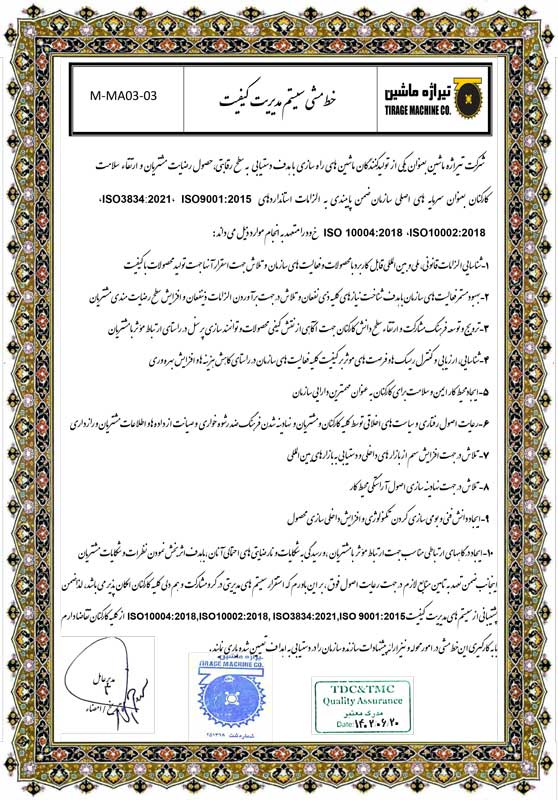 تیراژه ماشین
TIRAGE MACHINE CO.
خط مشی سیستم مدیریت کیفیت
M-MA03-03
شرکت تیراژه ماشین بعنوان یکی از تولیدکنندگان ماشین های راه سازی با هدف دستیابی به سطح رقابتی، حصول رضایت مشتریان و ارتقاء سلامت
کارکنان بعنوان سرمایه های اصلی سازمان ضمن پایبندی به الزامات استانداردهای ISO9001:2015 ،ISO3834:2021،
ISO10002:2018، ISO 10004:2018 خود را متعهد به انجام موارد ذیل می داند:
۱-شناسایی الزامات قانونی، ملی و بین المللی قابل کاربرد با محصولات و فعالیت های سازمان و تلاش جهت استقرار آنها جهت تولید محصولات با کیفیت
۲-بهبود مستمر فعالیت های سازمان با هدف شناخت نیازهای کلیه ذی نفعان و تلاش در جهت برآوردن الزامات ذینفعان و افزایش سطح رضایت مندی مشتریان
۳-ترویج و توسعه فرهنگ مشارکت و ارتقاء سطح دانش کارکنان جهت آگاهی از نقش کیفی محصولات و توانمندسازی پرسنل در راستای ارتباط مؤثر با مشتریان
۴-شناسایی، ارزیابی و کنترل ریسک ها و فرصت های موثر بر کیفیت کلیه فعالیت های سازمان در راستای کاهش هزینه ها و افزایش بهره وری
۵-ایجاد محیط کار ایمن و سلامت برای کارکنان به عنوان مهمترین دارایی سازمان
۶-رعایت اصول رفتاری و سیاست های اخلاقی توسط کلیه کارکنان و مشتریان و نهادینه شدن فرهنگ ضد رشوه خواری و صیانت از داده ها و اطلاعات مشتریان و رازداری
۷-تلاش در جهت افزایش سهم از بازارهای داخلی و دستیابی به بازارهای بین المللی
۸-تلاش در جهت نهادینه سازی اصول آراستگی محیط کار
۹-ایجاد دانش فنی و بومی سازی کردن تکنولوژی و افزایش داخلی سازی محصول
۱۰-ایجاد درگاههای ارتباطی مناسب جهت ارتباط مؤثر با مشتریان ،و رسیدگی به شکایات و نارضایتی های احتمالی آنان، با هدف اثربخش نمودن نظرات و شکایات مشتریان
اینجانب ضمن تعهد به تامین منابع لازم در جهت رعایت اصول فوق، بر این باورم که استقرار سیستم های مدیریتی در گرو مشارکت و هم دلی کلیه کارکنان امکان پذیر می باشد، لذا ضمن
پشتیبانی از سیستم های مدیریت کیفیت ISO10004:2018,ISO10002:2018, ISO3834:2021,ISO 9001:2015 از کلیه کارکنان تقاضا دارم
با به کارگیری این خط مشی در امور محوله و نیز ارائه پیشنهادات سازنده سازمان را در دستیابی به اهداف تعیین شده یاری نمایند.
مدیر عامل
تیراژه ماشین
TIRAGE MACHINE CO.
TDC&TMC
Quality Assurance
مدرک معتبر
Date: ۱۴۰۲،۰۶،۲۰